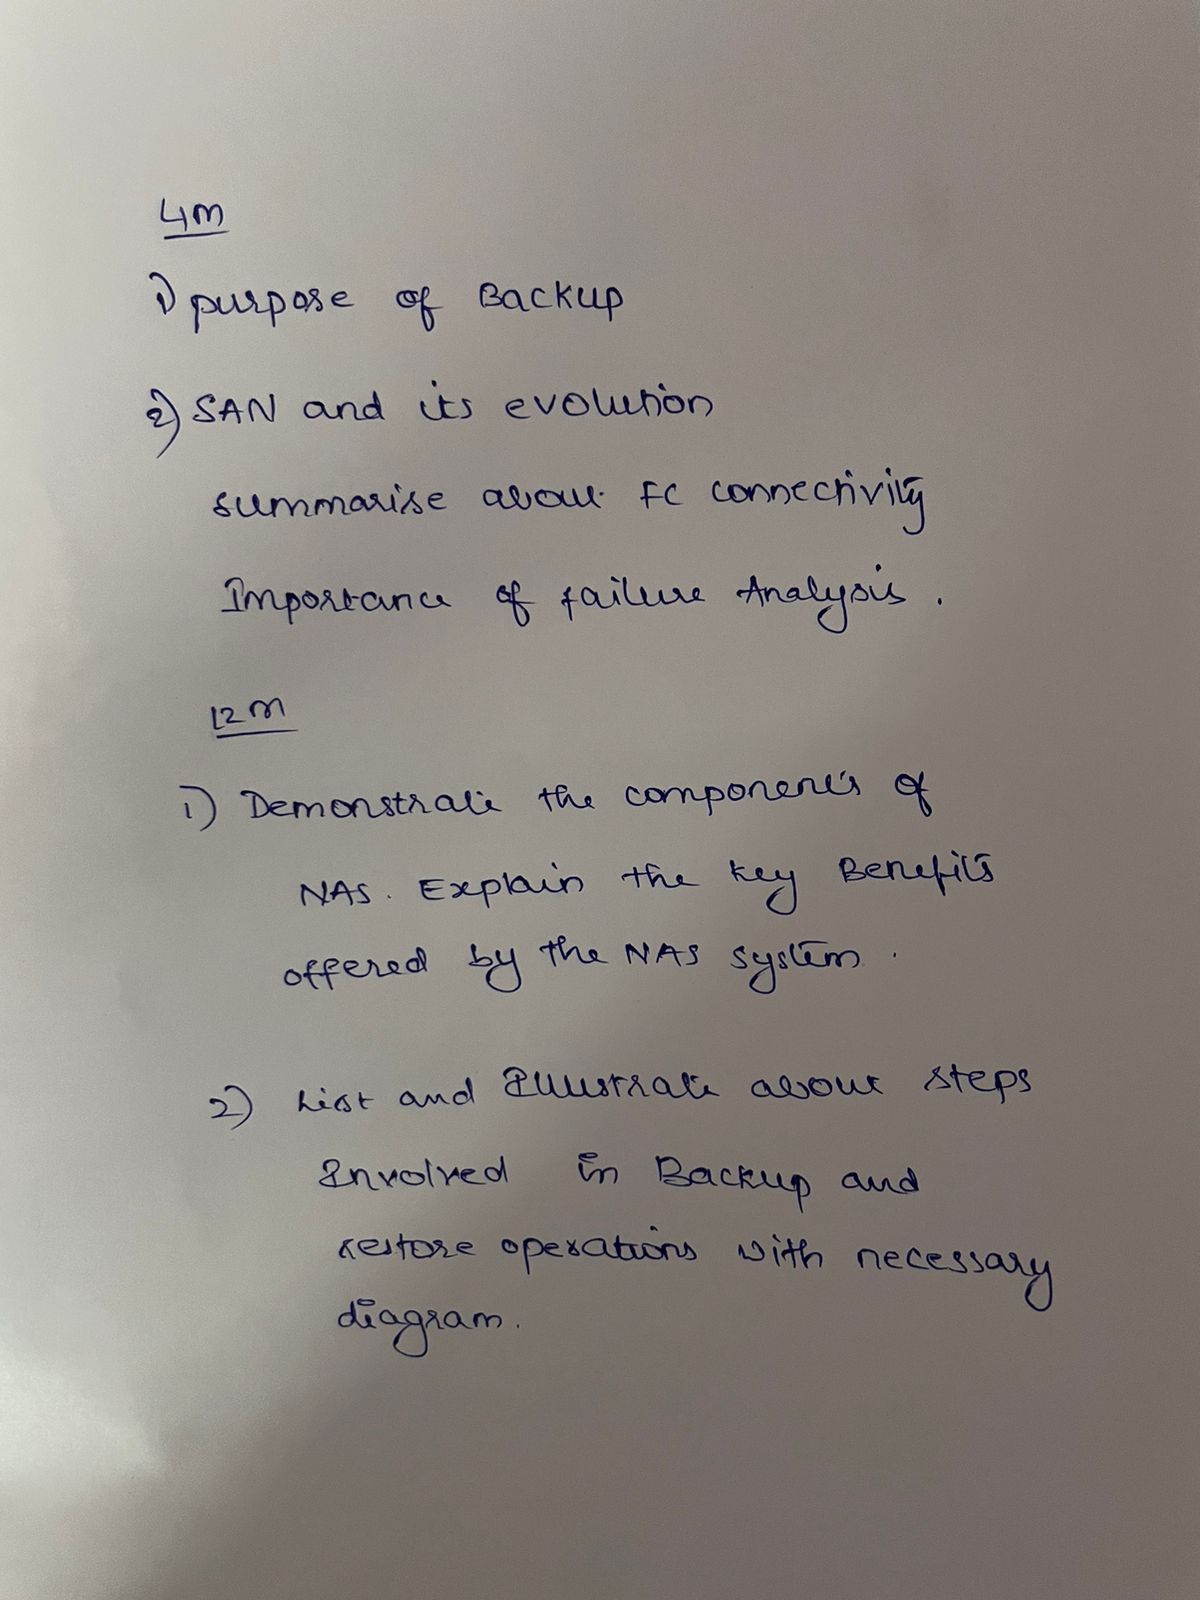 4m
1) purpose of Backup
2) SAN and its evolution
summarise about FC connectivity
Importance of failure Analysis.
12m
1) Demonstrate the components of
NAS. Explain the key Benefits
offered by the NAS system.
2) List and Illustrate about steps
Involved in Backup and
restore operations with necessary
diagram.